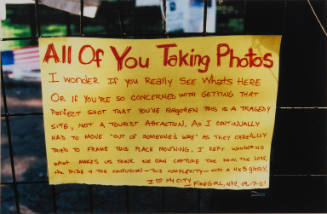 All Of You Taking Photos
I wonder if you Really See Whats Here
Or if you're so concerned with getting that
Perfect shot that you've forgotten this is a tragedy
site, not a tourist attraction. As I continually
had to move "out of someone's way" as they carefully
tried to frame this place mourning, I kept wondering
what makes us think we can capture the pain, the loss,
the pride & the confusion - this complexity - into a 4x5 glossy.
I ♥ my city
Firegirl, NYC, 09.17.01